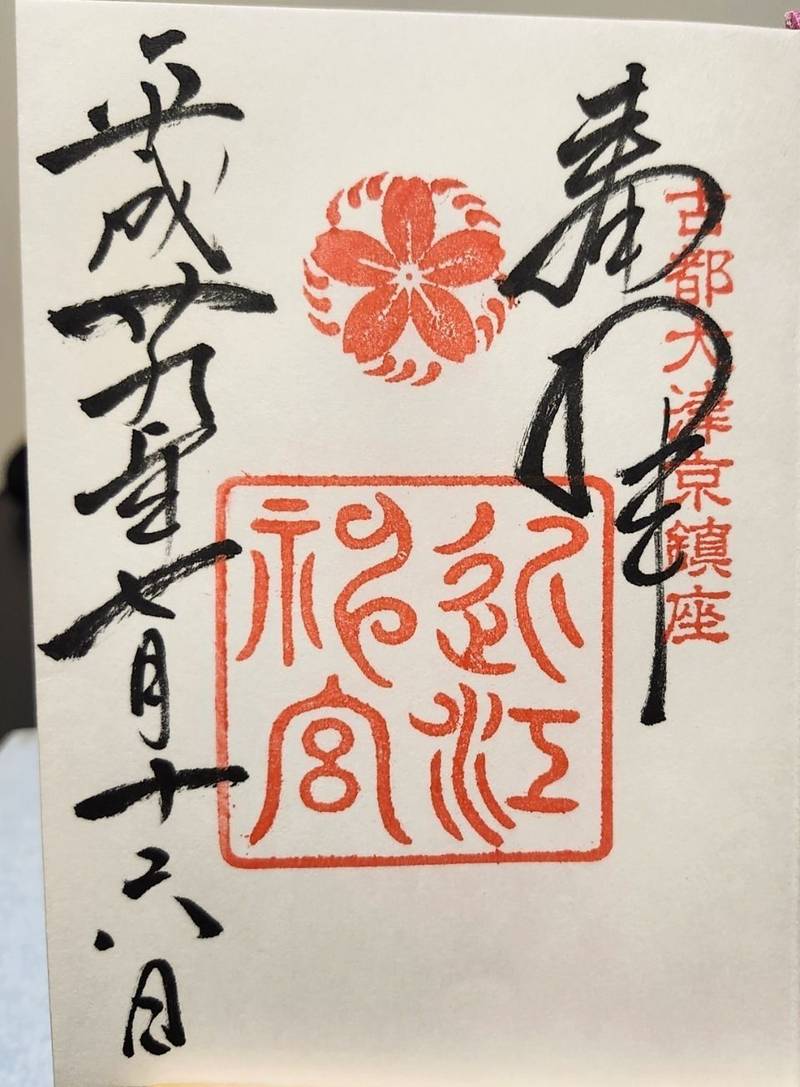 古都大津京鎮座
奉拝
近江
神宮
平成廿九年七月十六日